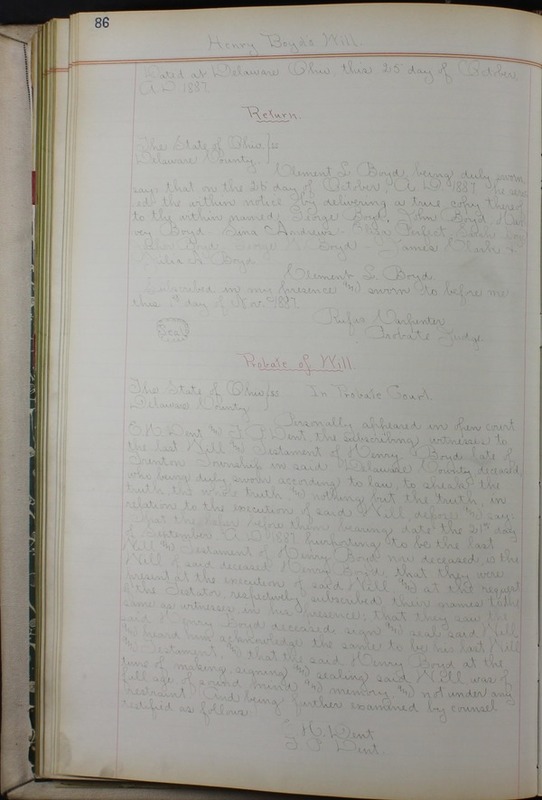 86
Henry Boyd's Will.
Dated at Delaware Ohio, this 25 day of October
A.D. 1887.
Return.
The State of Ohio, } ss
Delaware County. }
Clement L. Boyd, being duly sworn
says that on the 26 day of October A.D. 1887 he serv
ed the within notice by delivering a true copy thereof
to the within named George Boyd, John Boyd,
vey Boyd Andrews Perfect
Boyd James Clark &
Julia A. Boyd
Clement L. Boyd
Subscribed in my presence and sworn to before me
this 1st day of Nov. 1887
Rufus Carpenter
Seal
Probate Judge.
Probate of Will.
The State of Ohio } ss In Probate Court.
Delaware County. }
Personally appeared in open court
Dent and Dent, the subscribing witnesses to
the last Will and Testament of Henry Boyd late of
Trenton Township in said Delaware County, deceased,
who being duly sworn according to law, to speak the
truth, the whole truth and nothing but the truth, in
relation to the execution of said Will depose and say:
That the paper before them, bearing date the 21st day
of September A.D. 1887, purporting to be the last
Will and Testament of Henry Boyd now deceased, is the
Will of said deceased Henry Boyd, that they were
present at the execution of said Will and at the request
of the Testator, respectively subscribed their names to the
same as witnesses, in his presence, that they saw the
said Henry Boyd deceased, sign and seal said Will
and heard him acknowledge the same to be his last Will
and Testament, and that the said Henry Boyd at the
time of making, signing and sealing said Will was of
full age, of sound mind and memory, and not under any
restraint. And being further examined by counsel
testified as follows
Dent
Dent.